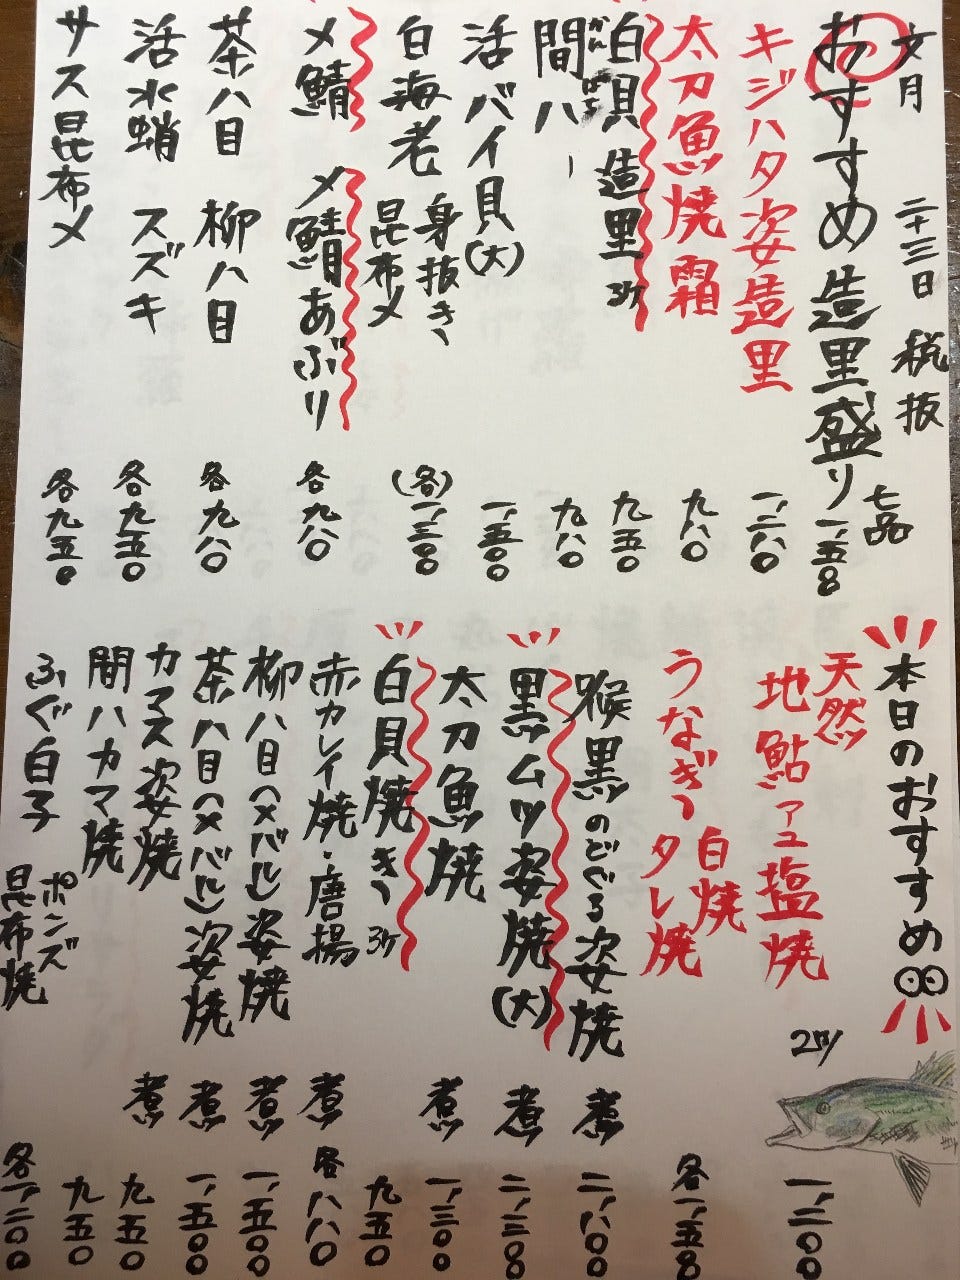 文月 二十三日 税抜
おすすめ造里盛り 七品 一、五〇〇
キジハタ姿造里 一、二八〇
太刀魚焼霜 九八〇
白貝造里 3ケ 九五〇
間八 かんぱち 九八〇
活バイ貝(大) 一、五〇〇
白海老 身抜き 昆布〆 (各)一、三〇〇
〆鯖 〆鯖あぶり 各九八〇
茶八目 柳八目 各九八〇
活水蛸 スズキ 各九五〇
サス昆布〆 各九五〇
本日のおすすめ
天然 地鮎アユ塩焼 一、二〇〇
うなぎ 白焼 タレ焼 各一、五〇〇
喉黒のどぐろ姿焼 煮 二、八〇〇
黒ムツ姿焼(大) 煮 二、三〇〇
太刀魚焼 煮 一、三〇〇
白貝焼き 3ケ 九五〇
赤カレイ焼・唐揚 煮 各八八〇
柳八目(メバル)姿焼 煮 一、五〇〇
茶八目(メバル)姿焼 煮 一、五〇〇
カマス姿焼 煮 九五〇
間八カマ焼 九五〇
ふぐ白子 ポンズ 昆布焼 各一、二〇〇